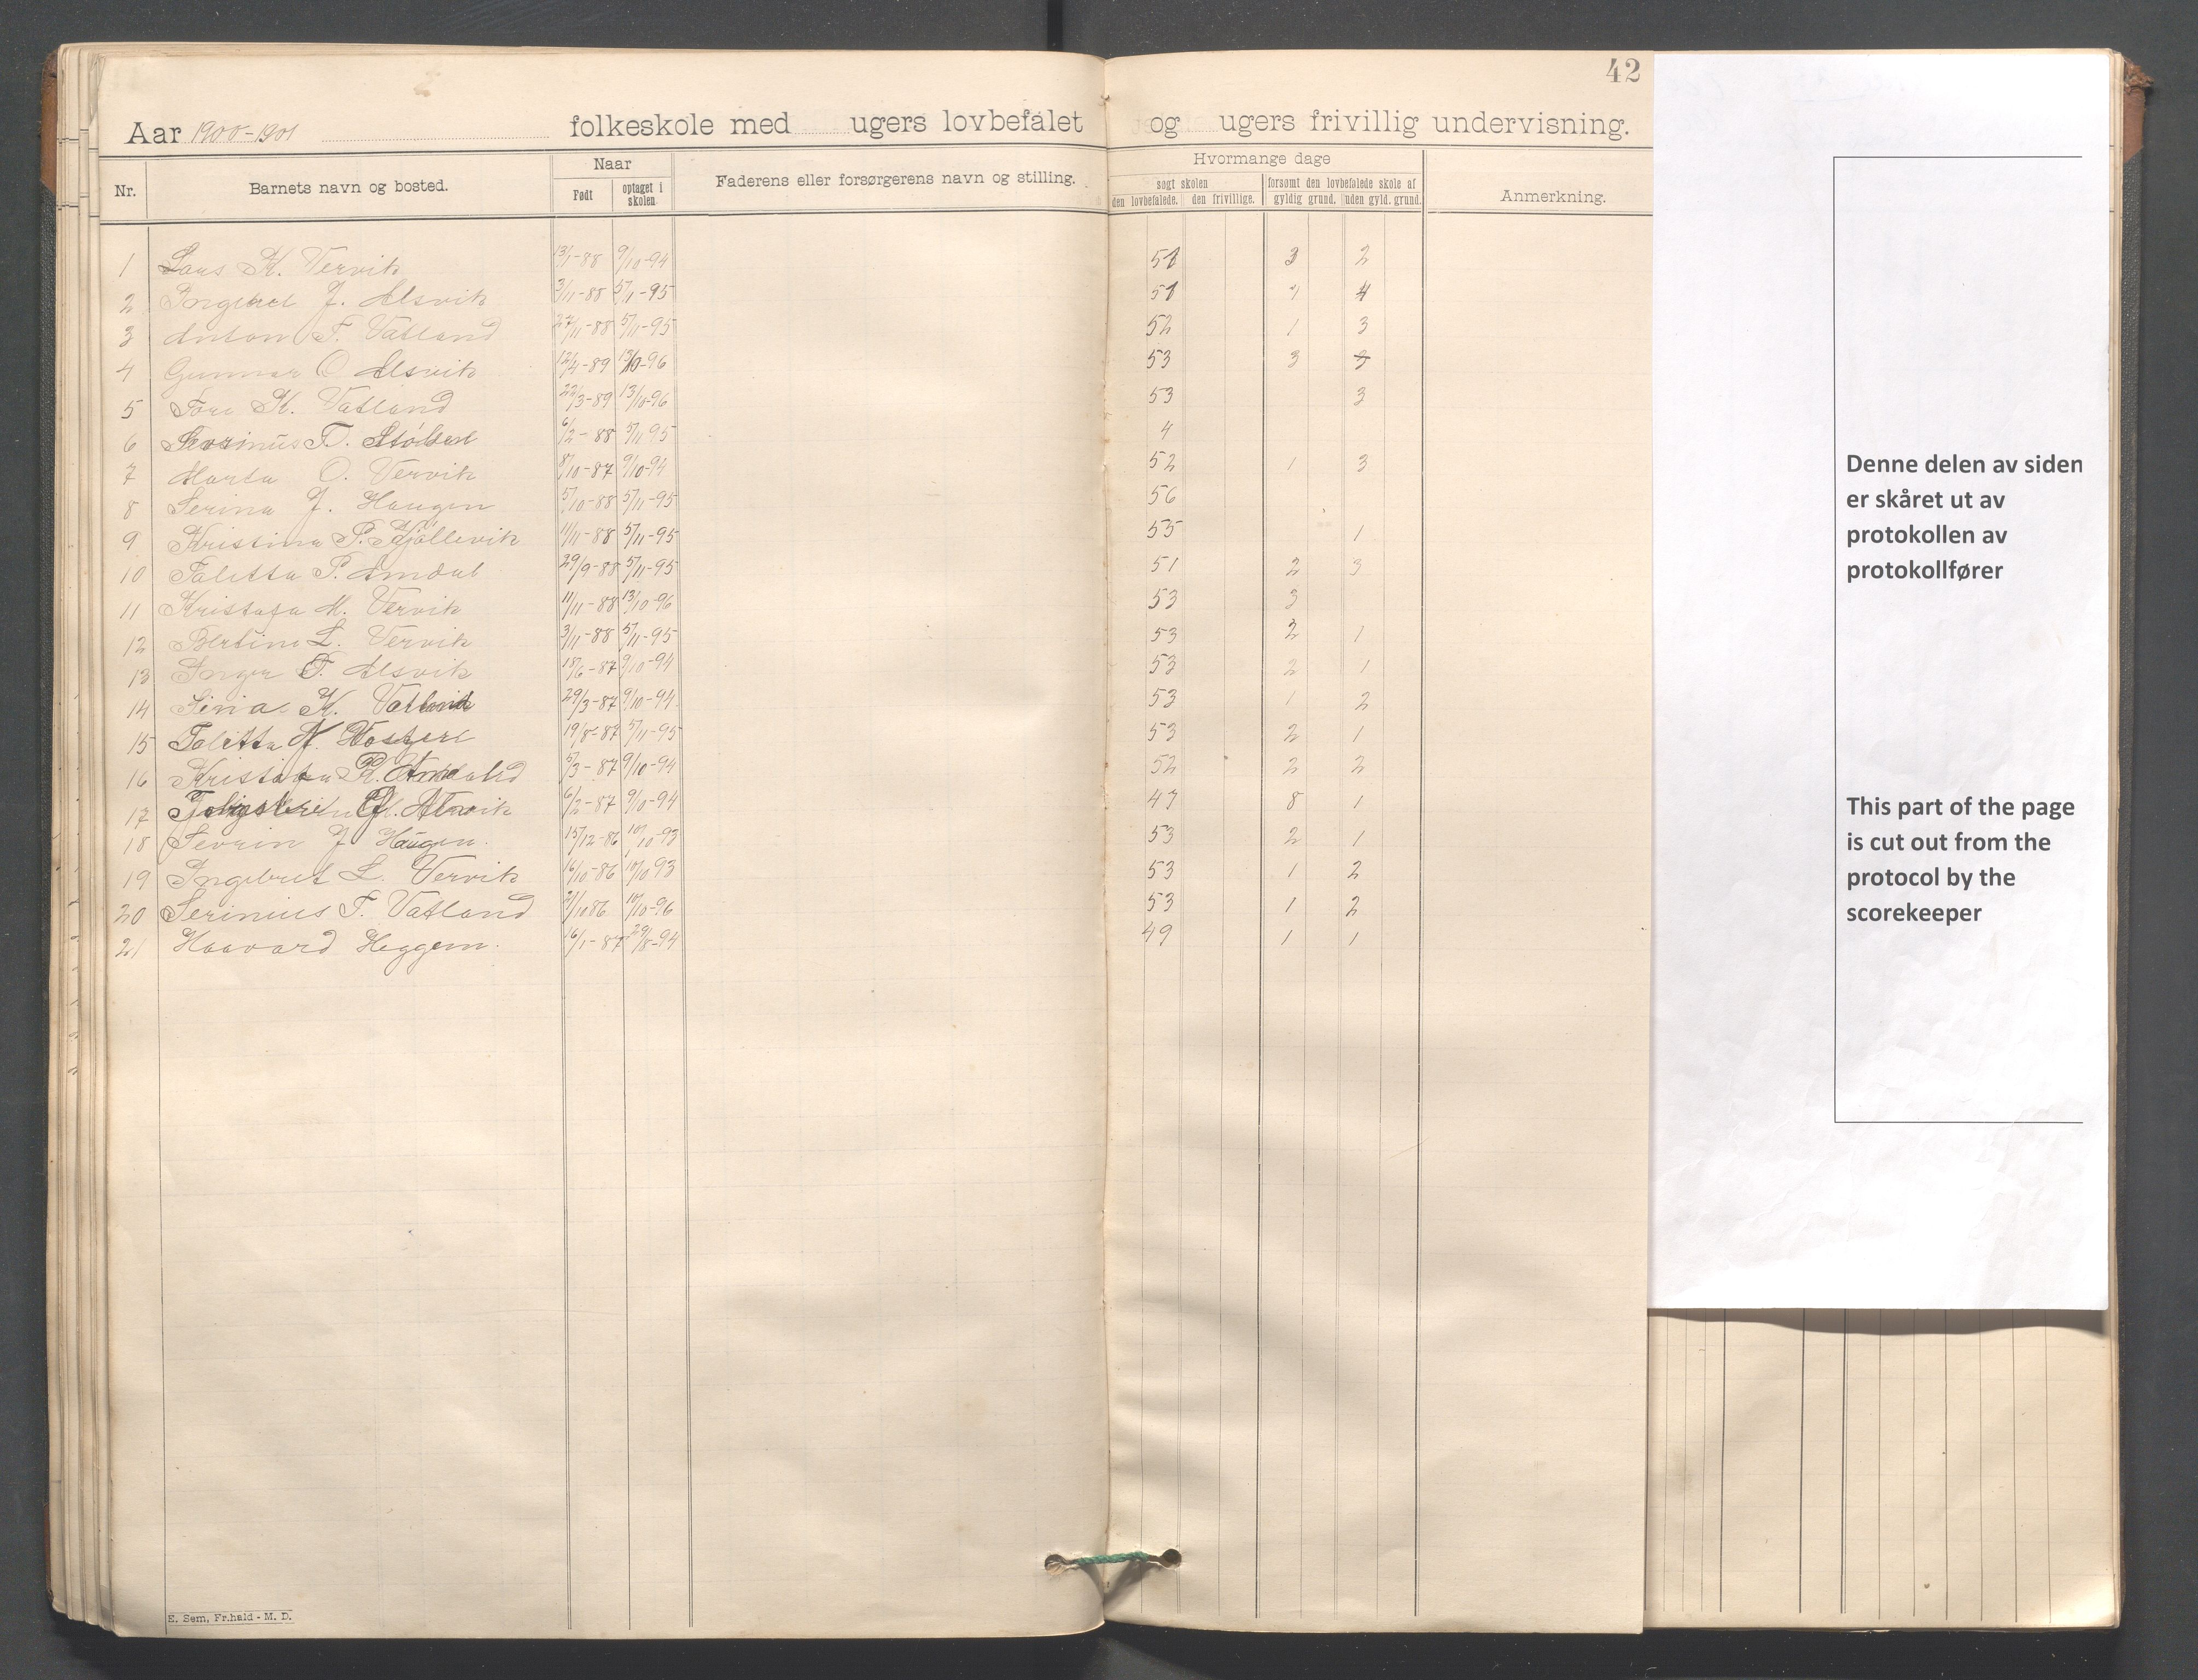 42
Aar 1900-1901 folkeskole med ugers lovbefalet og ugers frivillig undervisning.
Nr. Barnets navn og bosted. Naar Født optaget i skolen Faderens eller forsørgerens navn og stilling. Hvormange dage søgt skolen den lovbefalede. den frivillige. forsømt den lovbefalede skole af gyldig grund. uden gyld. grund. Anmerkning.
1 Lars K. Vervik 13/1-88 9/10-94 51 3 2
2 J. Alsvik 3/11-88 5/11-95 51 4
3 Anton T. Vatland 27/11-88 5/11-95 52 1 3
4 Gunnar O Alsvik 12/4-89 13/10-96 53 3
5 Tore K. Vatland 22/3-89 13/10-96 53 3
6 Sevrinus T. 6/2-88 5/11 95 4
7 Marta O. Vervik 8/10-87 9/10-94 52 1 3
8 Serina J. Haugen 5/10-88 5/11-95 56
9 Kristina P. Kjøllevik 11/11-88 5/11-95 55 1
10 Taletta P. Amdal 29/9-88 5/11-95 51 2 3
11 Kristofa M. Vervik 11/11-88 13/10-96 53 3
12 Bertine L. Vervik 3/11-88 5/11-95 53 2 1
13 Inger T. Alsvik 18/6-87 9/10-94 53 2 1
14 Sina K. Vatland 29/3-87 9/10-94 53 1 2
15 Taletta 19/8-87 5/11-95 53 2 1
16 5/3-87 9/10-94 52 2 2
17 Alsvik 6/2-87 9/10-94 47 8 1
18 Sevrin J Haugen. 15/12-86 10/10-93 53 2 1
19 Ingebret L. Vervik 16/10-86 10/10 93 53 1 2
20 Serinius T. Vatland 10/10-96 53 1 2
21 Haavard Heggem. 16/1-87 29/8-94 49 1 1
E. Sem, Fr.hald - M. D.
Denne delen av siden
er skåret ut av
protokollen av
protokollfører
This part of the page
is cut out from the
protocol by the
scorekeeper